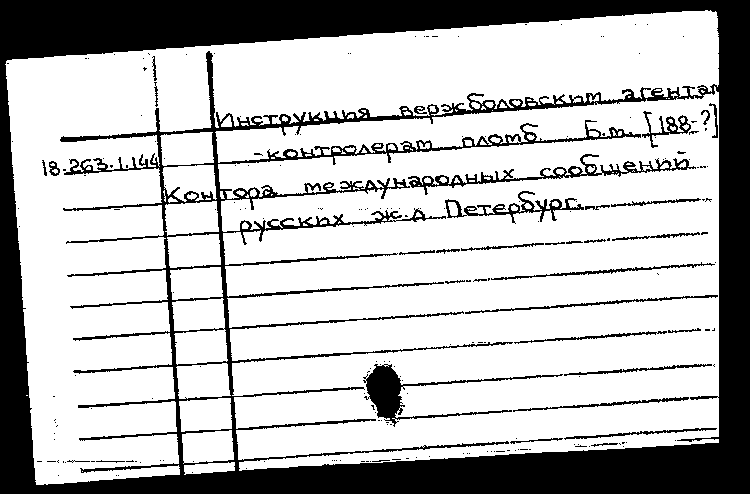 Инструкция вержболовским агентам
18.263.1.144 -контролерам пломб. Б.м. [188-?]
Контора международных сообщений
русских ж.д Петербург.